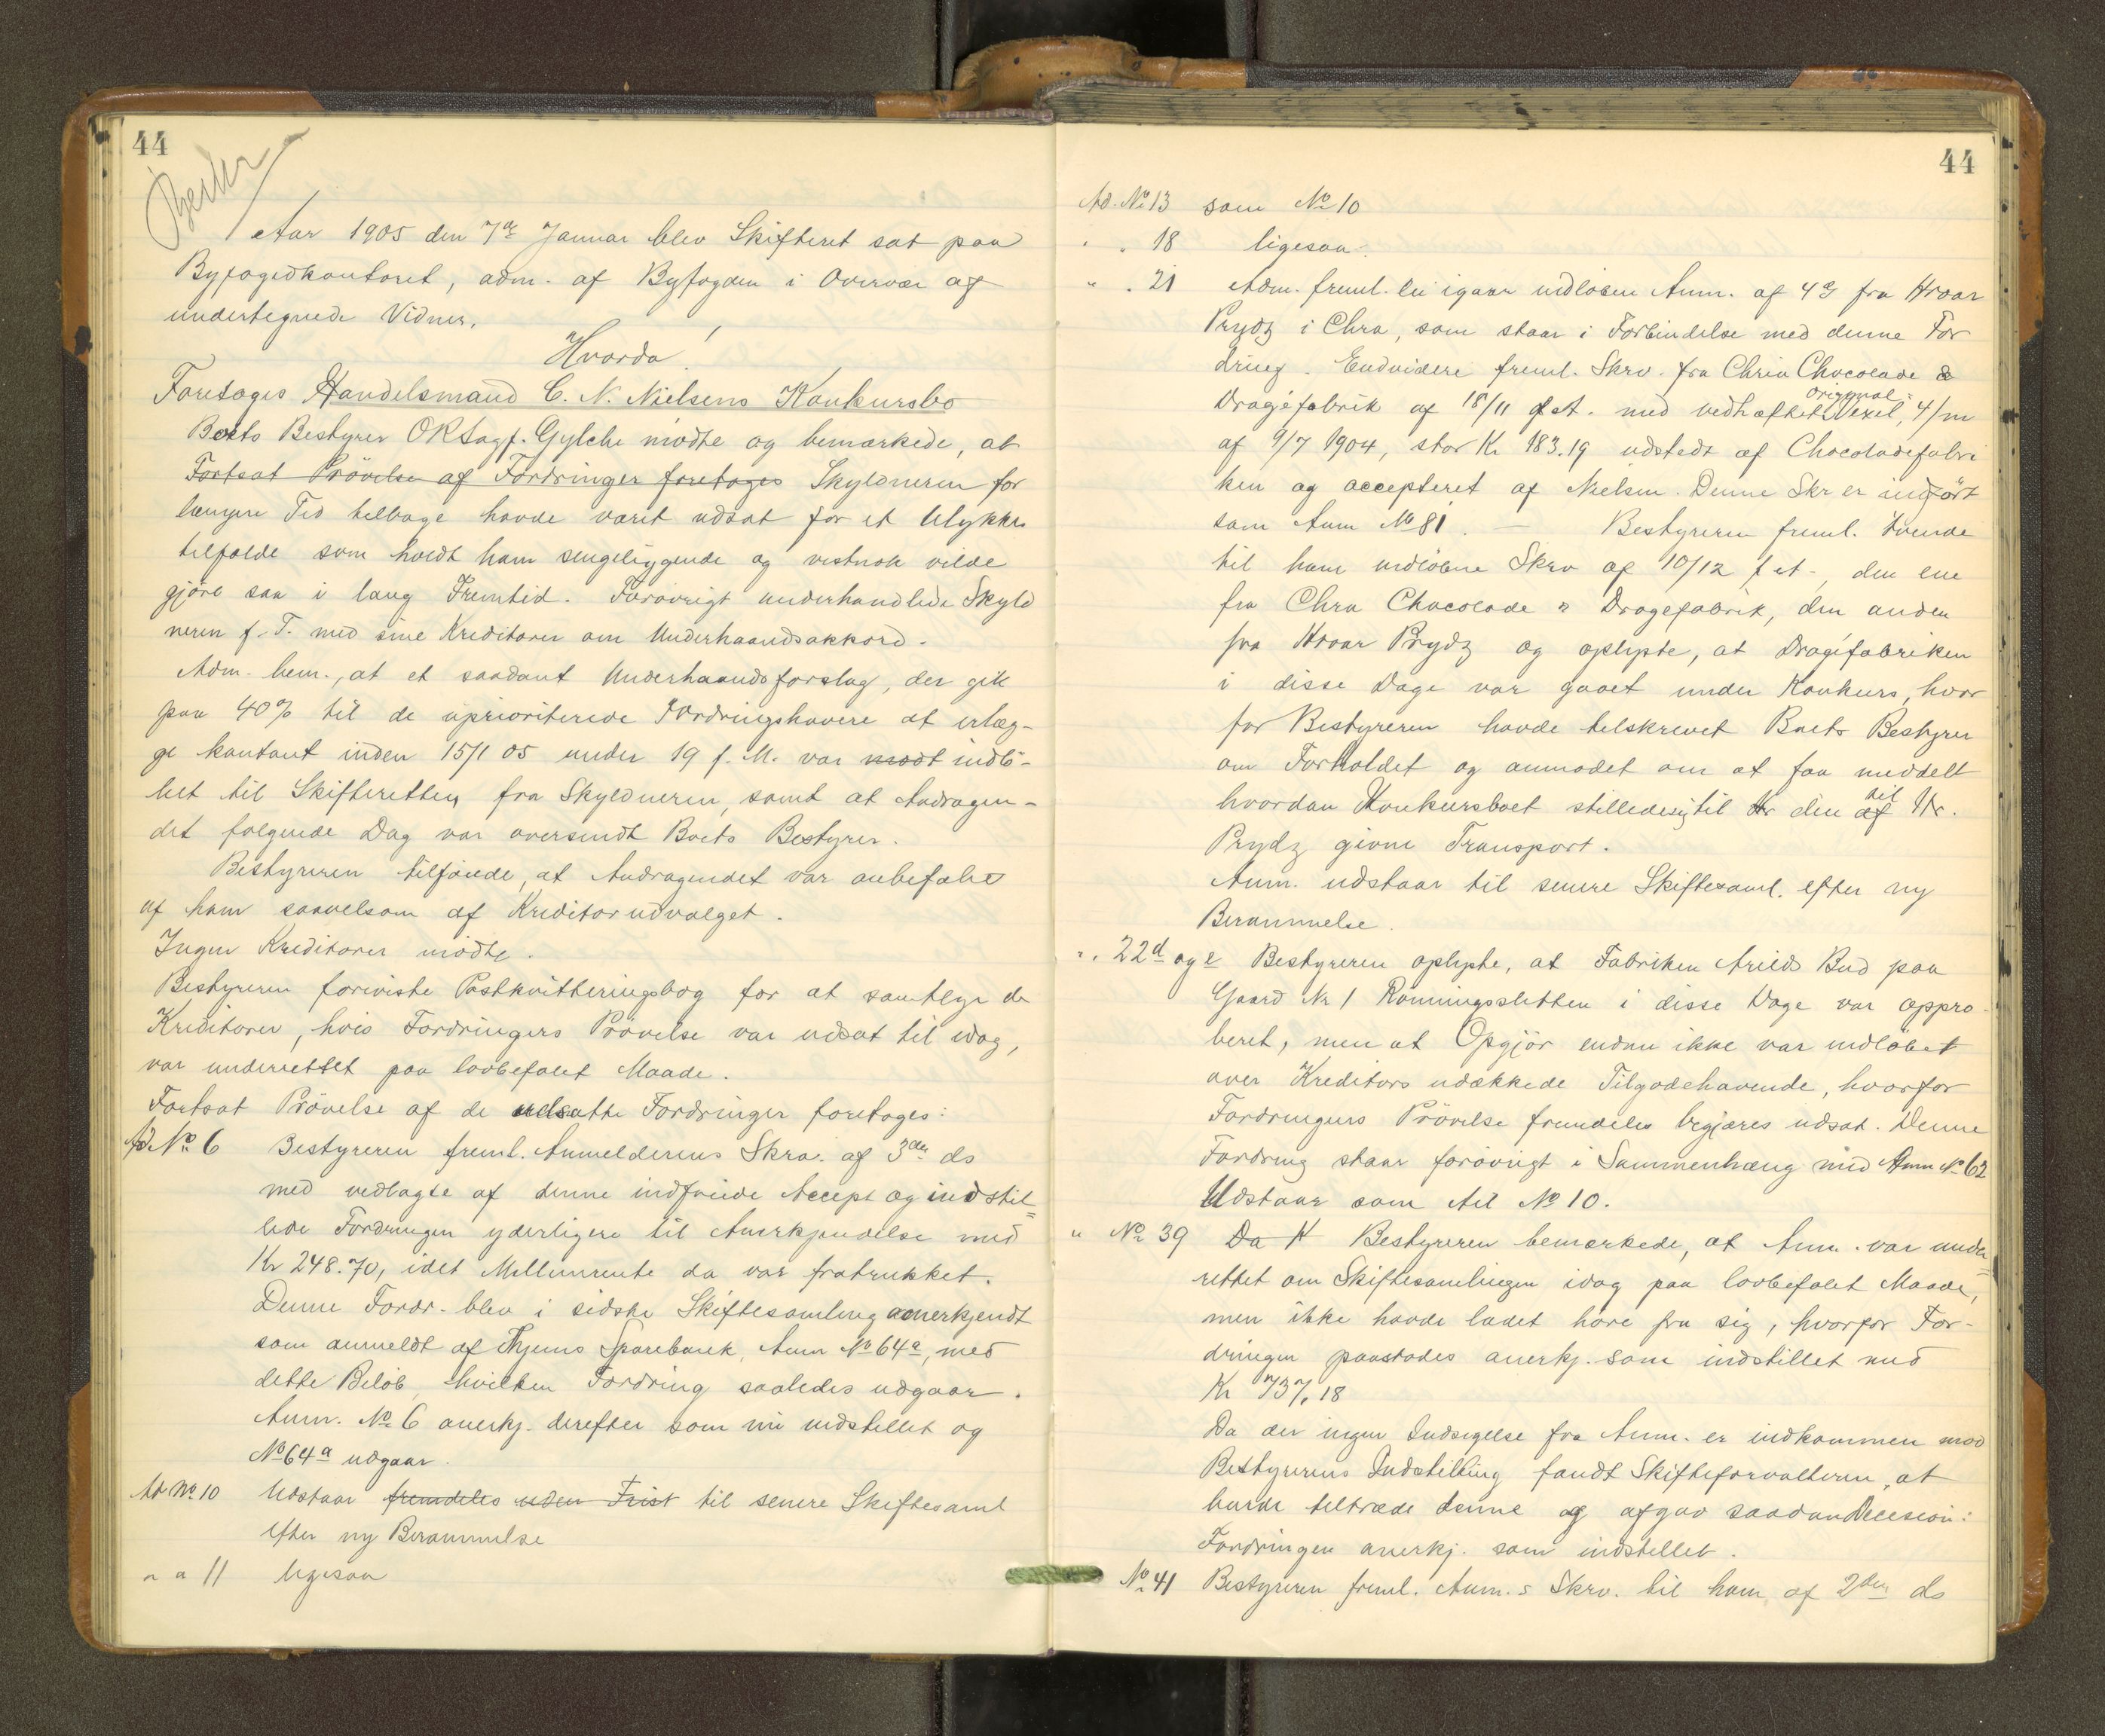 44
Aar 1905 den 7de Januar blev Skifteret sat paa
Byfogedkontoret, adm. af Byfogden i Overvær af
undertegnede Vidner.
Hvorda!
Foretoges Handelsmand C. N. Nielsens Konkursbo
Boets Bestyrer ORSagf. Gylche mødte og bemærkede, at
Fortsat Prövelse af Fordringer foretoges Skyldneren for
længere Tid tilbage havde været udsat for et Ulykkes
tilfælde som holdt ham sengeliggende og vistnok vilde
gjöre saa i lang Fremtid. Forøvrigt underhandlede Skyld
neren f. T. med sine Kreditorer om Underhaandsakkord.
Adm. bem., at et saadant Underhaandsforslag, der gik
paa 40% til de uprioriterede Fordringshavere at erlæg-
ge kontant inden 15/1 05 under 19 f. M. var modt indlö-
bet til Skifteretten fra Skyldneren, samt at Andragen-
det følgende Dag var oversendt Boets Bestyrer.
Bestyreren tilföiede, at Andragendet var anbefalet
af ham saavelsom af Kreditorudvalget.
Ingen Kreditorer mödte.
Bestyreren foreviste Postkvitteringsbog for at samtlige de
Kreditorer, hvis Fordringers Prövelse var udsat til idag,
var underrettet paa lovbefalet Maade.
Fortsat Prövelse af de udsatte Fordringer foretoges:
Ad No 6 Bestyreren freml. Anmelderens Skrv. af 3die ds
med vedlagte af denne indfriede Accept og indstil
lede Fordringen yderligere til Anerkjendelse med
Kr 248.70, idet Mellemrente da var fratrukket.
Denne Fordr. blev i sidste Skiftesamling anerkjendt
som anmeldt af Sparebank, Anm No 64a, med
dette Belöb, hvilken Fordring saaledes udgaar.
Anm. No 6 anerkj. derefter som nu indstillet og
No 64a udgaar.
Ad No 10 Udstaar fremdeles uden Frist til senere Skiftesaml
efter ny Berammelse
" " 11 ligesaa
44
Ad. No 13 som No 10
" " 18 ligesaa.
" " 21 Adm. freml. en igaar indløben Anm. af 4 ds fra Hroar
Prydz i Chra, som staar i Forbindelse med denne For
dring. Endvidere freml. Skrv. fra Chria Chocolade &
original
Dragéfabrik af 18/11 f. A. med vedhæftet Vexel, 4/m
af 9/7 1904, stor Kr 183.19 udstedt af Chocoladefabri
ken og accepteret af Nielsen. Denne Skr er indfört
som Anm No 81. — Bestyreren freml. tvende
til ham indlöbne Skrv af 10/12 f. A., den ene
fra Chra Chocolade & Dragefabrik, den anden
fra Hroar Prydz og oplyste, at Dragéfabriken
i disse Dage var gaaet under Konkurs, hvor
for Bestyreren havde tilskrevet Boets Bestyrer
om Forholdet og anmodet om at faa meddelt
til
hvordan Konkursboet stilledesig til Hr den af Hr.
Prydz givne Transport.
Anm. udstaar til senere Skiftesaml. efter ny
Berammelse.
" . 22d og e Bestyreren oplyste, at Fabriken Arilds Bud paa
Gaard Nr 1 Rønningssletten i disse Dage var appro-
beret, men at Opgjör endnu ikke var indlöbet
over Kreditors udækkede Tilgodehavende, hvorfor
Fordringens Prövelse fremdeles begjæres udsat. Denne
Fordring staar forøvrigt i Sammenhæng med Anm No 62
Udstaar som Ad No 10.
" No 39 Da K Bestyreren bemærkede, at Anm. var under
rettet om Skiftesamlingen idag paa lovbefalet Maade,
men ikke havde ladet höre fra sig, hvorfor For-
dringen paastodes anerkj. som indstillet med
Kr 737,18
Da der ingen Indsigelse fra Anm. er indkommen mod
Bestyrerens Indstilling fandt Skifteforvalteren, at
burde tiltræde denne og afgav saadan Decision:
Fordringen anerkj. som indstillet.
" No 41 Bestyreren freml. Anm.s Skrv. til ham af 2den ds